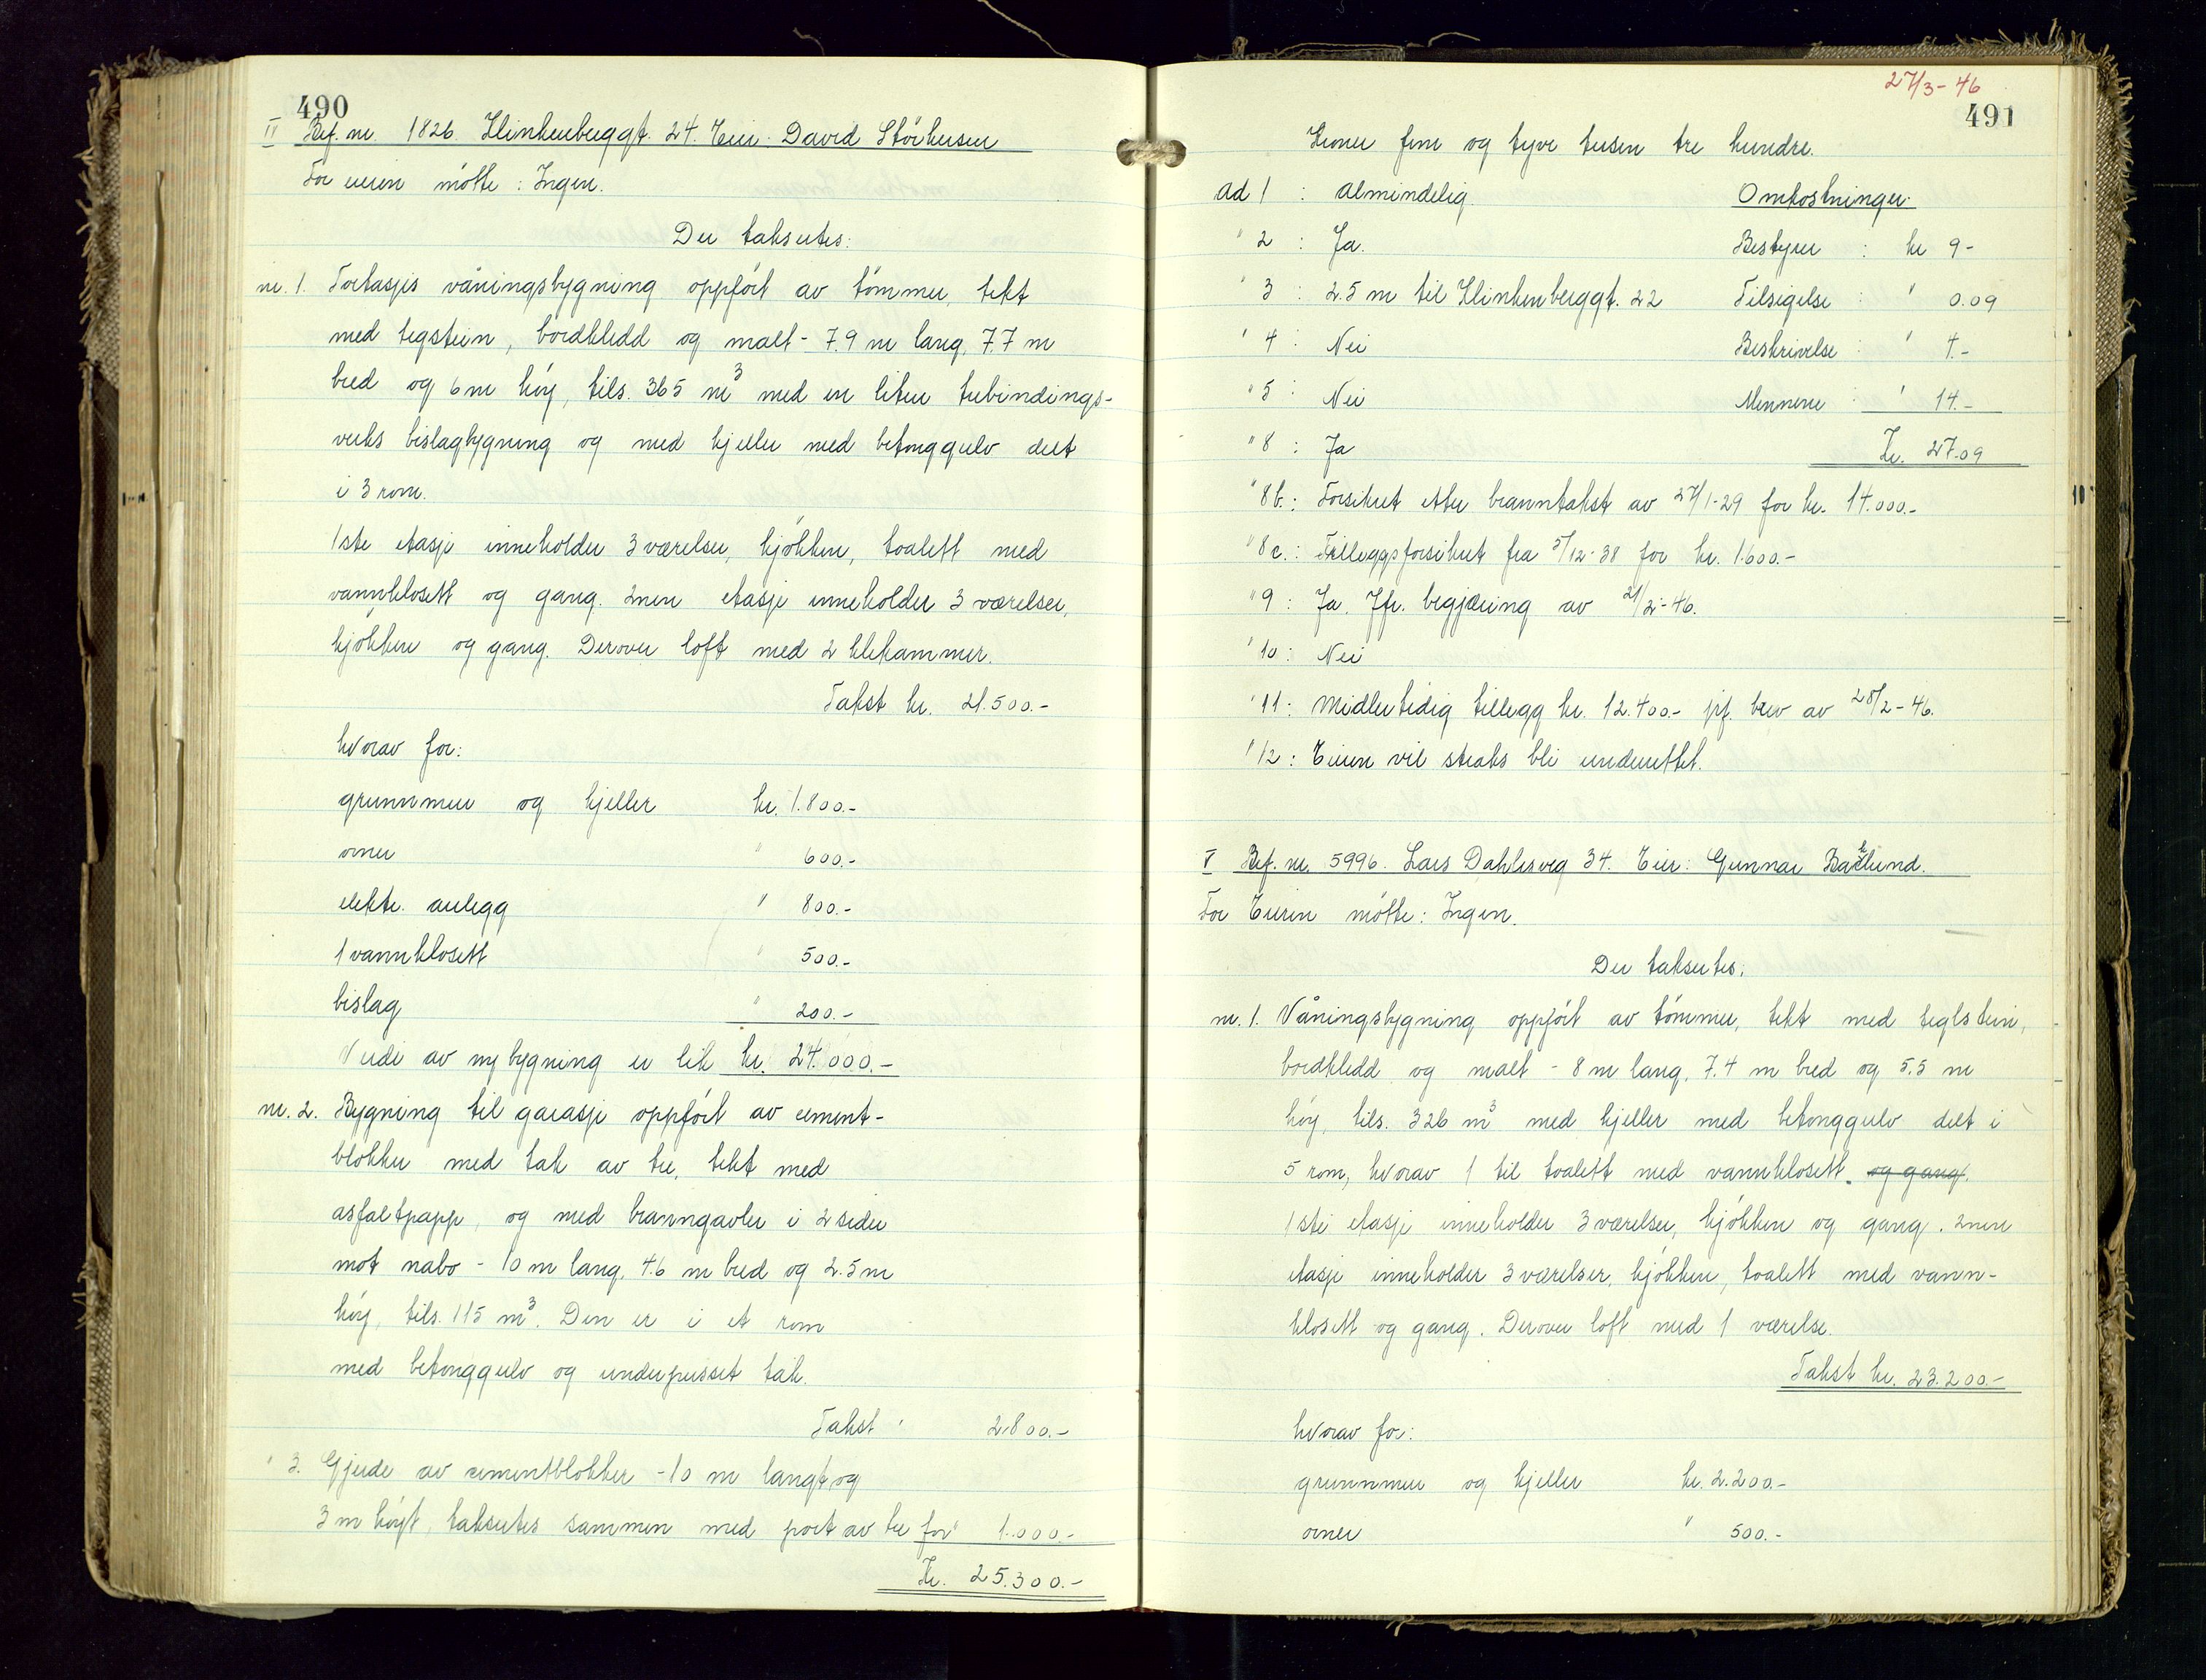 490
II Bef. nr. 1826 Klinkenberggt. 24. Eier: David Störkersen
For eieren mötte: Ingen.
Der takseres:
nr. 1. Toetasjes våningsbygning oppfört av tömmer, tekt
med tegstein, bordkledd og malt - 7.9 m lang, 7.7 m
bred og 6 m höy, tils. 365 m³ med en liten trebindings-
verks bislagbygning og med kjeller med betonggulv delt
i 3 rom.
1ste etasje inneholder 3 værelser, kjökken, toalett med
vannklosett og gang. 2nen etasje inneholder 3 værelser,
kjökken og gang. Derover loft med 2 klekammer.
Takst kr. 21.500.-
hvorav for:
grunnmur og kjeller kr. 1.800.-
ovner " 600.-
elektr. anlegg " 800.-
1 vannklosett " 500.-
bislag " 200.-
Verdi av ny bygning er lik kr. 24.000.-
nr. 2. Bygning til garasje oppfört av cement-
blokker med tak av tre, tekt med
asfaltpapp, og med branngavler i 2 sider
mot nabo - 10 m lang, 4.6 m bred og 2.5 m
höy, tils. 115 m³. Den er i et rom
med betonggulv og underpusset tak.
Takst " 2.800.-
" 3. Gjerde av cementblokker - 10 m langt og
3 m höyt, takseres sammen med port av tre for " 1.000.-
Kr. 25.300.-
27/3-46
491
Kroner fem og tyve tusen tre hundre.
ad 1 : almindelig. Omkostninger.
" 2 : Ja. Bestyrer : kr 9-
" 3 : 2.5 m til Klinkenberggt. 22 Tilsigelse : " 0.09
" 4 : Nei Beskrivelse : " 4.-
" 5 : Nei Mennene : " 14.-
" 8 : Ja Kr. 27.09
" 8b. : Forsikret etter branntakst av 27/1-29 for kr. 14.000.-
" 8c. : Tilleggsforsikret fra 5/12-38 for kr. 1.600.-
" 9 : Ja. Jfr. begjæring av 21/2-46.
" 10 : Nei
" 11 : Midlertidig tillegg kr. 12.400.- jfr. brev av 28/2-46.
" 12 : Eieren vil straks bli underrettet.
V Bef. nr. 5996. Lars Dahlesveg 34. Eier: Gunnar Baklund.
For Eieren mötte: Ingen.
Der takseres:
nr. 1. Våningsbygning oppfört av tömmer, tekt med teglstein,
bordkledd og malt - 8 m lang, 7.4 m bred og 5.5 m
höy, tils. 326 m³ med kjeller med betonggulv delt i
5 rom, hvorav 1 til toalett med vannklosett. og gang.
1ste etasje inneholder 3 værelser, kjökken og gang. 2nen
etasje inneholder 3 værelser, kjökken, toalett med vann-
klosett og gang. Derover loft med 1 værelse.
Takst kr. 23.200.-
hvorav for:
grunnmur og kjeller kr. 2.200.-
ovner " 500.-